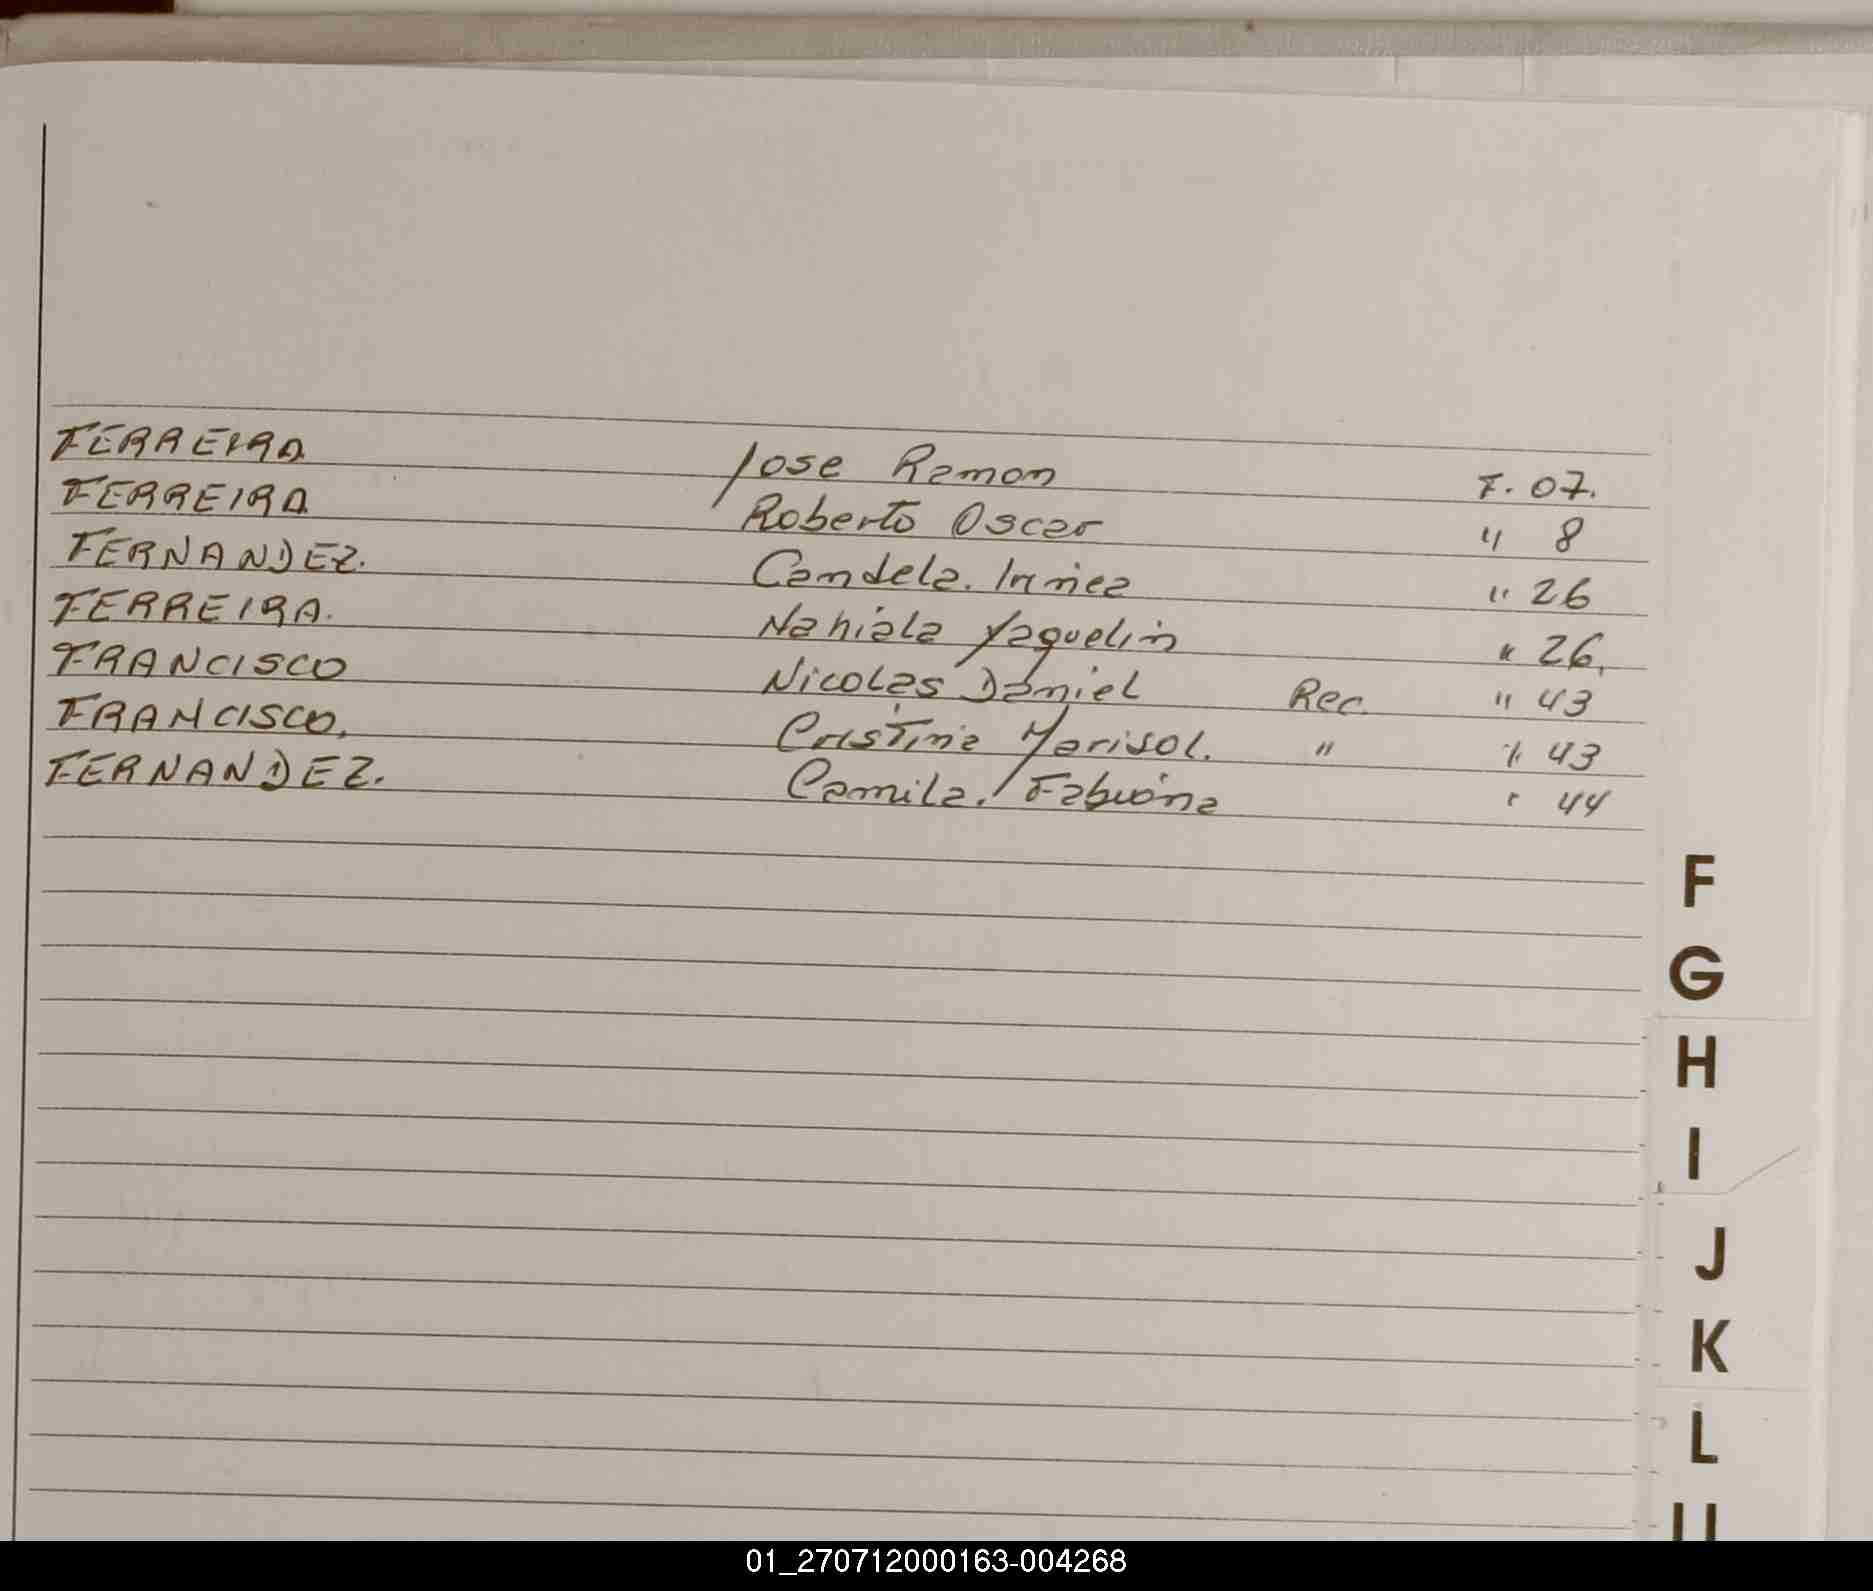 FERREIRA Jose Ramon F. 07.
FERREIRA Roberto Oscar " 8
FERNANDEZ. Candela. " 26
FERREIRA. Nahiala Yaquelin " 26.
FRANCISCO Nicolas Daniel Rec. " 43
FRANCISCO. Cristina Marisol. " " 43
FERNANDEZ. Camila. Fabiana " 44
F
G
H
I
J
K
L
01_270712000163-004268